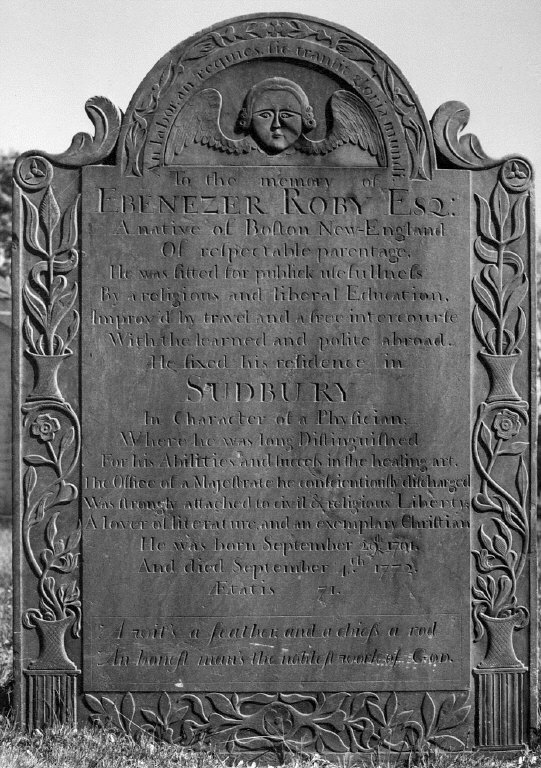 In labor aut requies. sic transit gloria mundi
To the memory of
EBENEZER ROBY ESQ:
A native of Boſton New-England
Of reſpectable parentage.
He was fitted for publick uſefullneſs
By a religious and liberal Education,
Improv'd by travel and a free intercourſe
With the learned and polite abroad.
He fixed his reſidence in
SUDBURY
In Character of a Phyſician;
Where he was long Diſtinguiſhed
For his Abilities and ſucceſs in the healing art.
The Office of a Majeſtrate he conſcientiouſly diſcharged
Was ſtrongly attached to civil & religious Liberty
A lover of literature, and an exemplary Chriſtian
He was born September 20th 1701.
And died September 4th 1772.
Ætatis 71.
A wit's a feather, and a chieſs a rod
An honeſt man's the nobleſt work of GOD.